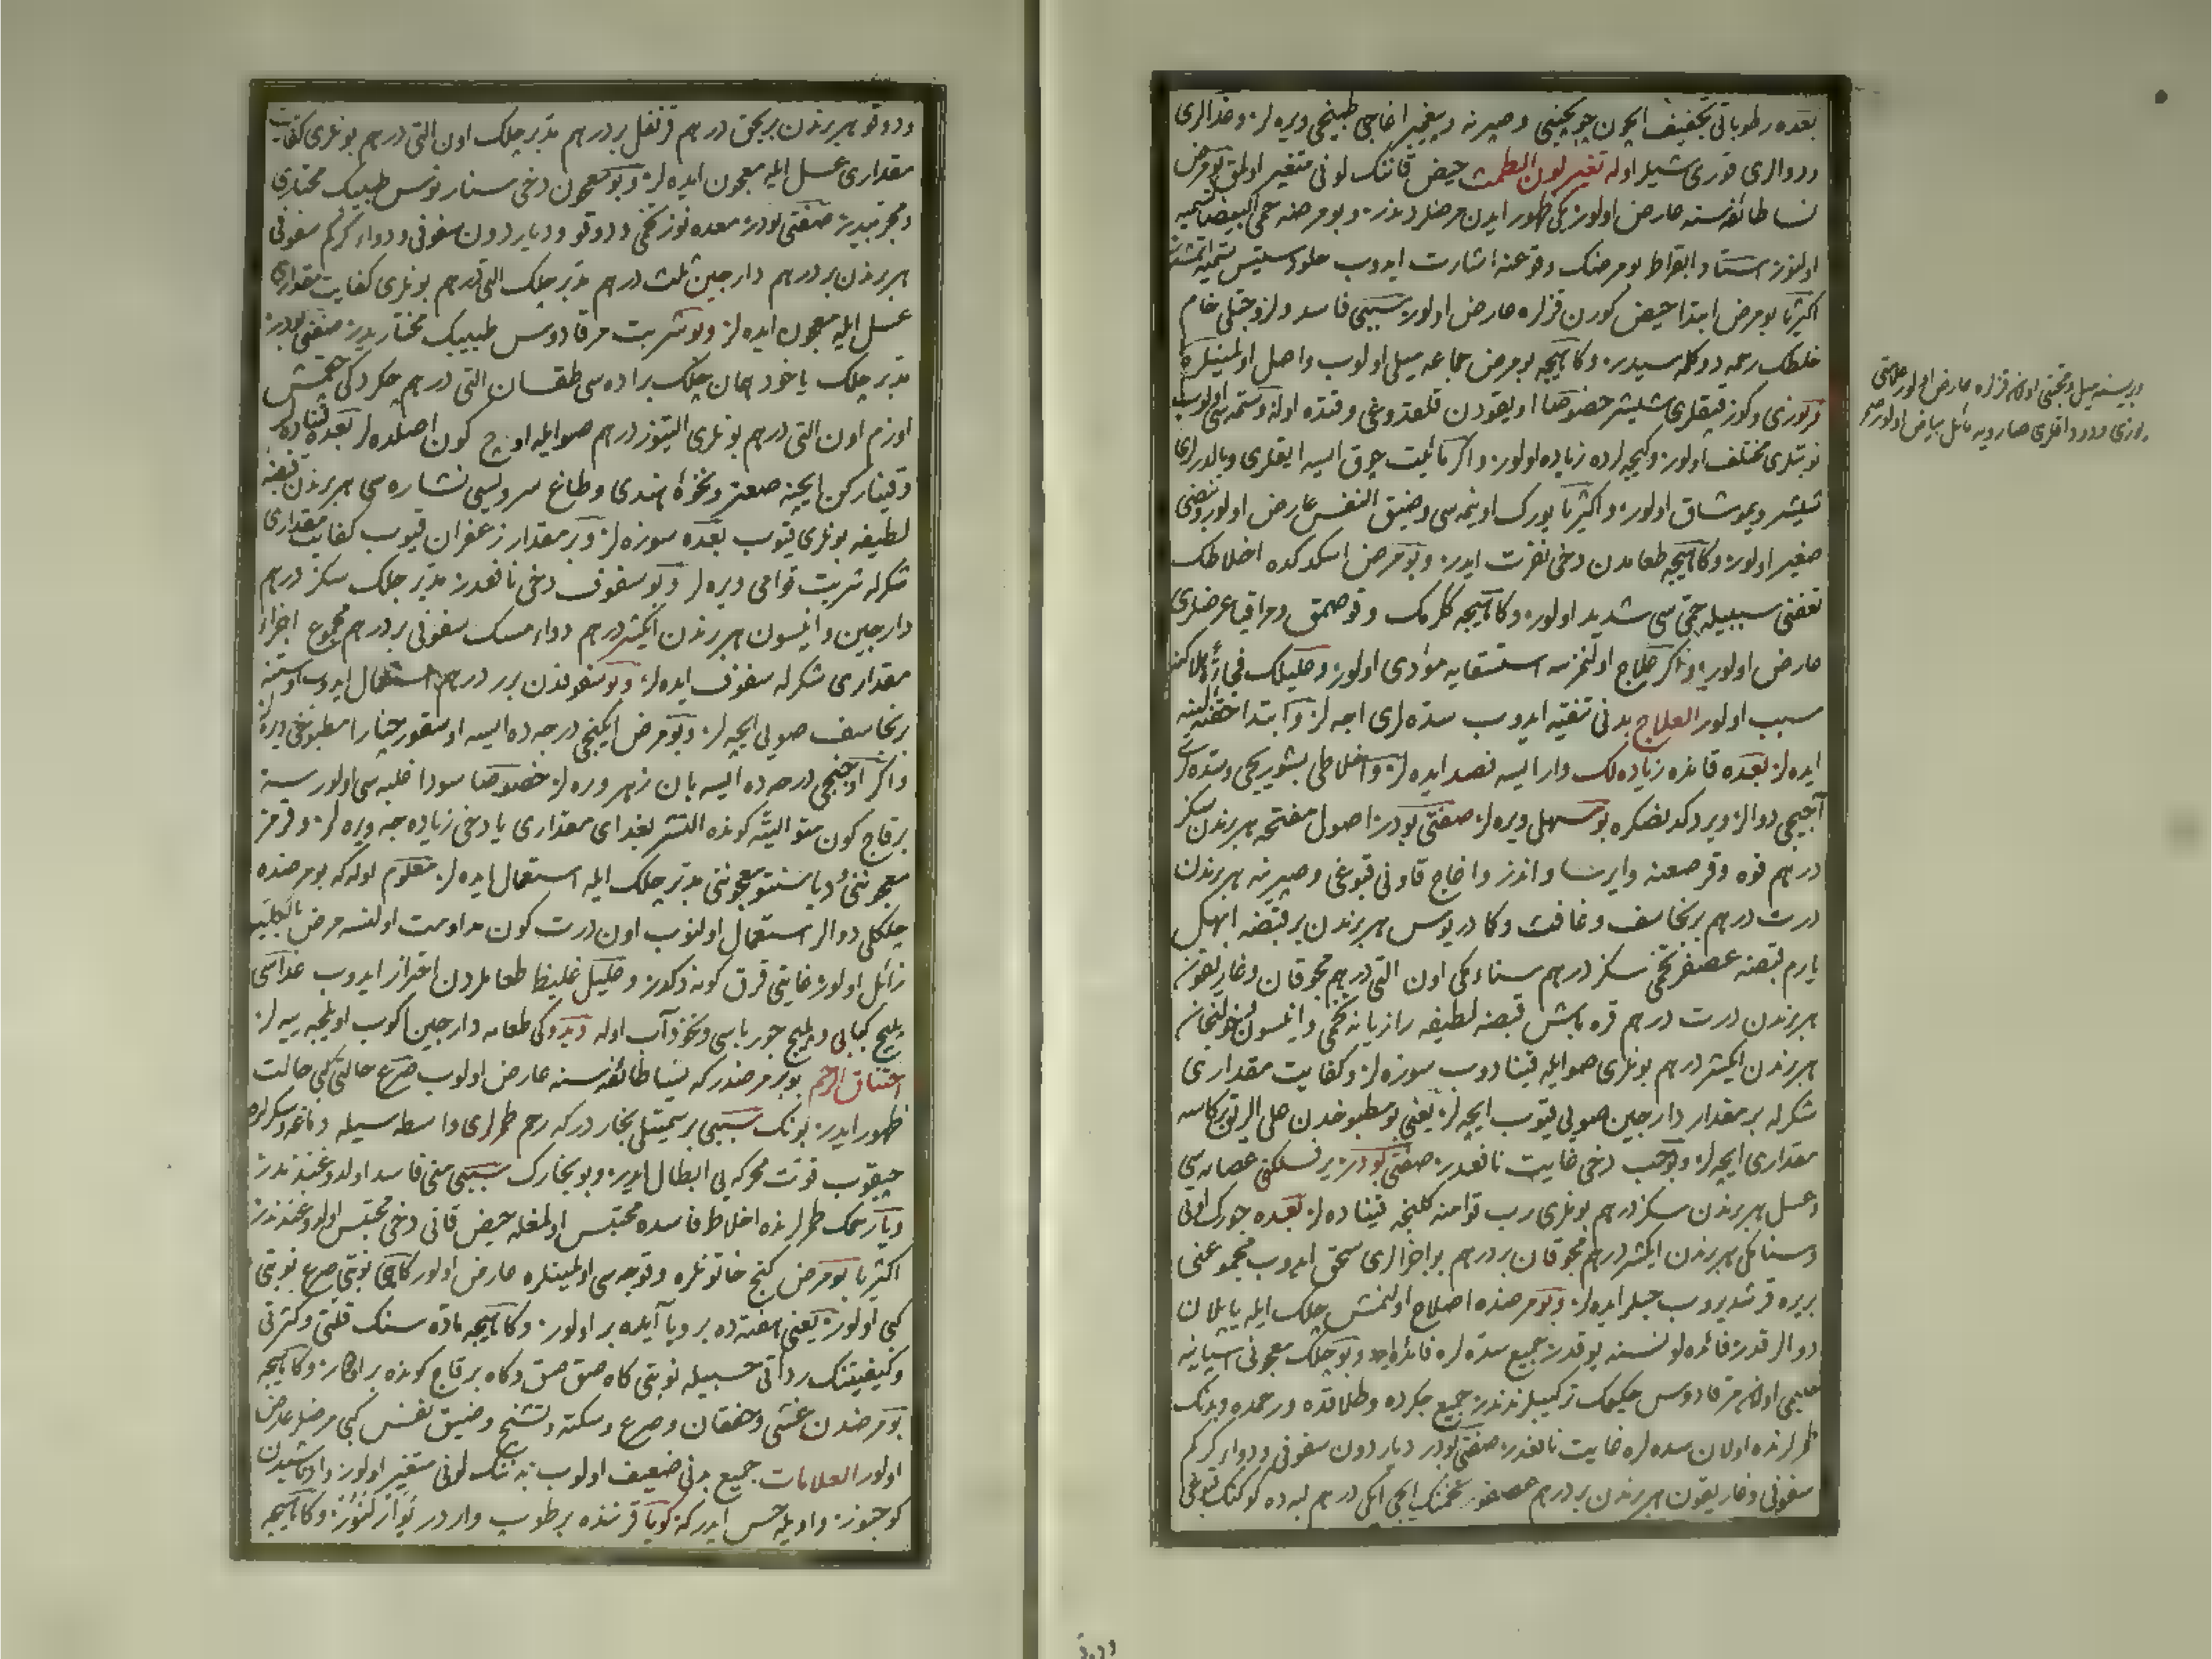 بعده رطوباتی تجفیف ایچون چوبچینی و صپرنه و پیغمبر اغاجی طبیخی ویره لر وغدالری
ودوالری قوری شیلر اوله تغیر لون الطمث حیض قاننك لونی متغیر اولمق بو مرض
نسا طائفه سنه عارض اولور كبی ظهور ایدن مرضلردندر وبو مرضه حمی ابیض تسمیه
اولنور استاد ابقراط بو مرضك وقوعنه اشارت ایدوب
اكثریا بو مرض ابتدا حیض كورن قزلره عارض اولور سببی فاسد ولزوجتلی خام
خلطك رحمه دوكلمه سیدر وكاهیجه بو مرض جماعه میلی اولوب واصل اولمینلره
یوزی وكوز قپقلری شیشر خصوصا اویقودن قلقدوغی وقتده اوله وستمه سی اولوب
نوبتلری مختلف اولور وكیجه لرده زیاده اولور واكر مائیت چوق ایسه ایقلری وبالدرلری
شیشر ویموشاق اولور واكثریا یورك اوینمه سی وضیق النفس عارض اولور ونبضی
صغیر اولور وكاهیجه طعامدن دخی نفرت ایدر وبو مرض اسكدكده اخلاطك
تعفنی سببیله حمی سی شدید اولور وكاهیجه ككرمك وقوصمق ومراقیا عرضلری
عارض اولور واكر علاج اولنمزسه استسقایه مؤدی اولور وعلیلك فجأة هلاكنه
سبب اولور العلاج بدنی تنقیه ایدوب سده لری اچه لر وابتدا حقنه لینه
ایده لر بعده قانده زیاده لك وار ایسه فصد ایده لر واخلاطی بشوریجی وسده لری
آچیجی دوالر ویردكدنصكره بو مسهلی ویره لر صفتی بودر اصول مفتحه هر برندن سكز
درهم فوه وقرصعنه وایرسا واندز واغاج قاونی قبوغی وصپرنه هر برندن
درت درهم برنجاسف وغافت وكادریوس هر برندن بر قبضه ابهل
یارم قبضه عصفر تخمی سكز درهم سناء مكی اون التی درهم محموقان وغاریقون
هر برندن درت درهم قره باش قبضه لطیفه رازیانه تخمی وانیسون وخولنجان
هر برندن ایكیشر درهم بونلری صو ایله قینادوب سوزه لر وكفایت مقداری
شكرله بر مقدار دارچین صویی قیوب ایچه لر یعنی بو مطبوخدن علی الریق بر كاسه
مقداری ایچه لر وبو حب دخی غایت نافعدر صفتی بودر عصاره سی
وعسل هر برندن سكز درهم بونلری رب قوامنه كلنجه قینادلر بعده
وسنا مكی هر برندن ایكیشر درهم محموقان بر درهم بو اجزالری سحق ایدوب مجموعنی
بربره قرشدیروب حبلر ایده لر وبو مرضده اصلاح اولنمش چلك ایله یاپلان
دوالر قدر فائده لو نسنه یوقدر جمیع سده لره فائده ایدر وبو چلك معجونی
اولان مرقادوس حكیمك تركیبلرندندر جمیع جكرده وطلاقده ورحمده وبدنك
طمرلرنده اولان سده لره غایت نافعدر صفتی بودر دیاردون سفوفی ودواء كركم
سفوفی وغاریقون هر برندن بر درهم عصفور تخمنك ایچی ایكی درهم
وربسنه میل ومحبتی اولان قزلره عارض اولور علامتی
یوزی ودوداقلری صارویه مائل بیاض اولور
ودوقو هر برندن بر بچق درهم قرنفل بر درهم مدبر چلك اون التی درهم بونلری كفایت
مقداری عسل ایله معجون ایده لر وبو معجون دخی سنارتوس طبیبك مختاری
ومجربیدر صفتی بودر معدنوز تخمی ودوقو ودیاردون سفوفی ودواء كركم سفوفی
هر برندن بر درهم دارچین ثلث درهم مدبر چلك التی درهم بونلری كفایت مقداری
عسل ایله معجون ایده لر وبو شربت مرقادوس طبیبك مختاریدر صفتی بودر
مدبر چلك یاخود همان چلك براده سی طقسان التی درهم چكردكی چقمش
اوزم اون التی درهم بونلری التیوز درهم صو ایله اوچ كون اصلده لر بعده قینادلر
وقیناركن ایچنه صعتر وبخوره هندی وطاغ سرویسی نشاره سی هر برندن قبضه
لطیفه بونلری قیوب بعده سوزه لر وبر مقدار زعفران قیوب كفایت مقداری
شكرله شربت قوامی ویره لر وبو سفوف دخی نافعدر مدبر چلك سكز درهم
دارچین وانیسون هر برندن ایكیشر درهم دواء مسك سفوفی بر درهم مجموع اجزاء
مقداری شكرله سفوف ایده لر وبو سفوفدن برر درهم استعمال ایدوب اوستنه
برنجاسف صویی ایچه لر وبو مرض ایكنجی درجه ده ایسه اوسقورجینار مطبوخی ویره لر
واكر اوچنجی درجه ده ایسه پان زهر ویره لر خصوصا سودا غلبه سی اولورسه
بر قاچ كون متوالیه كونده التشر بغدای مقداری یا دخی زیاده جه ویره لر وقرمز
معجوننی ودیاسنتو معجوننی مدبر چلك ایله استعمال ایده لر معلوم اوله كه بو مرضده
چلكلی دوالر استعمال اولنوب اون درت كون مداومت اولنسه مرض بالكلیه
زائل اولور غایتی قرق كونه دكدر وعلیل غلیظ طعاملردن احتراز ایدوب غداسی
پلیچ كبابی وپلیچ چورباسی ونخود آب اوله ویدوكی طعامه دارچین اكوب اویلجه ییه لر
اختناق الرحم بو بر مرضدر كه نسا طائفه سنه عارض اولوب صرع حالتی كبی حالت
ظهور ایدر بونك سببی بر سمیتلی بخاردر كه رحم طمرلری واسطه سیله دماغه وسكرلره
چیقوب قوت محركه یی ابطال ایدر وبو بخارك سببی منی فاسد اولدوغندندر
ویا رحمك طمرلرنده اخلاط فاسده محتبس اولمغله حیض قانی دخی محتبس اولدوغندندر
اكثریا بو مرض كنج خاتونلره وقوجه سی اولمینلره عارض اولور كاه نوبتی صرع نوبتی
كبی اولور یعنی هفته ده بر ویا آیده بر اولور وكاهیجه ماده سنك قلتی وكثرتی
وكیفیتنك ردائتی حسبیله نوبتی كاه صق صق وكاه بر قاچ كونده بر اولور وكاهیجه
بو مرضدن غشی وخفقان وصرع وسكته وتشنج وضیق نفس كبی مرضلر عارض
اولور العلامات جمیع بدنی ضعیف اولوب بنیه سنك لونی متغیر اولور
كوجنور واویله حس ایدر كه كویا قرننده بر طوپ واردر یوارلنور وكاهیجه
ودوقو